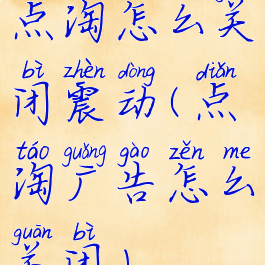 点淘怎么关
bì zhèn dòng diǎn
闭震动(点
táo guǎng gào zěn me
淘广告怎么
guān bì
关闭)